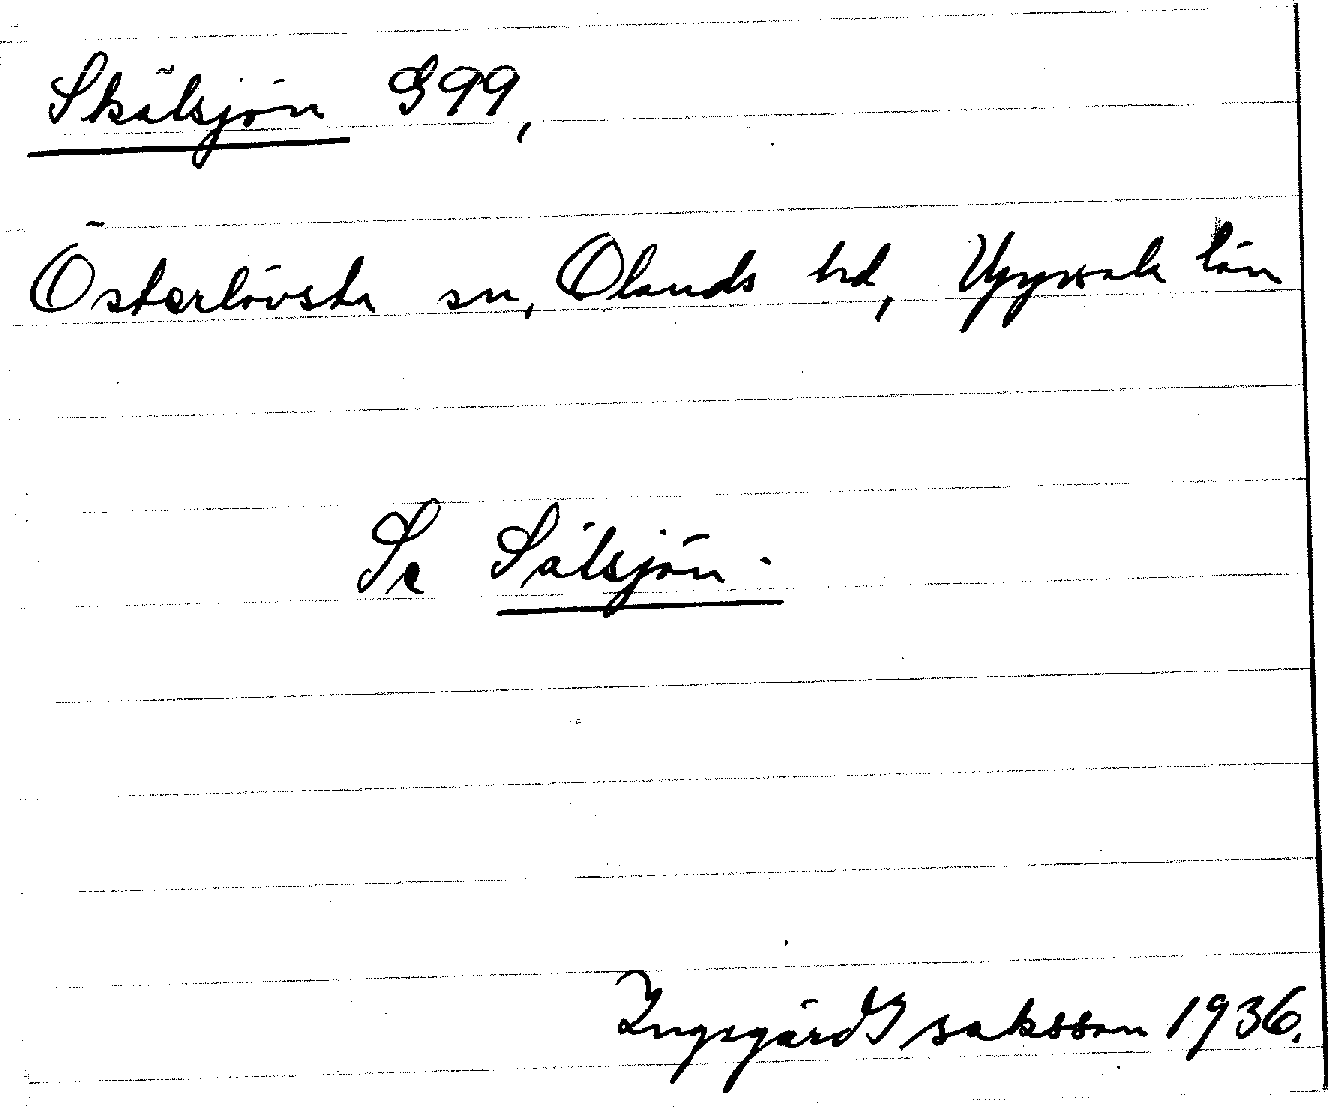 Skälsjön S99,
Österlövsta sn, Olands hd, Uppsala län
Se Sälsjön.
Ingegärd Isaksson 1936.